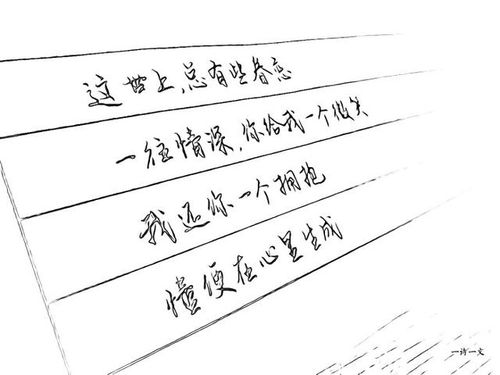 这世上,总有些眷恋
一往情深,你给我一个微笑
我还你一个拥抱
情便在心里生成
一诗一文